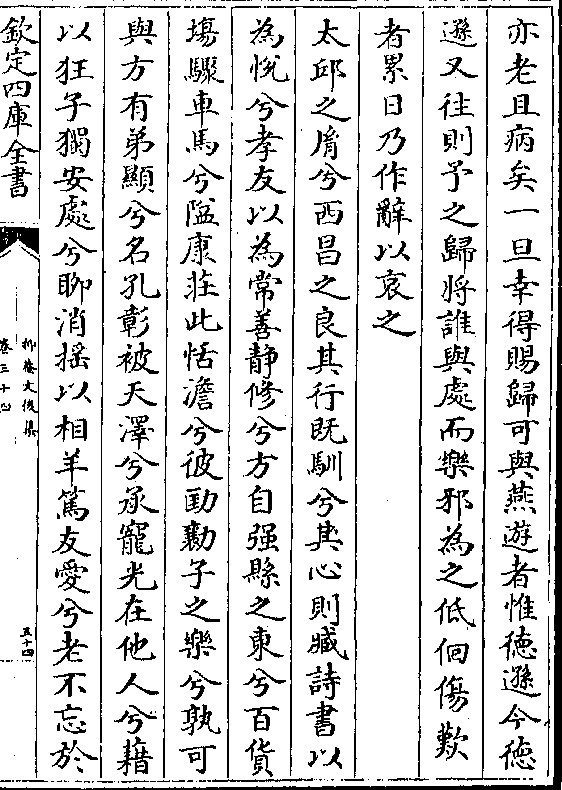 亦老且病矣一旦幸得賜歸可與燕遊者惟徳遜今徳
遜又往則予之歸將誰與處而樂邪為之低徊傷歎
者累日乃作辭以哀之
太邱之裔兮西昌之良其行既馴兮其心則臧詩書以
為悅兮孝友以為常善静修兮方自强縣之東兮百貨
塲驟車馬兮隘康莊此恬澹兮彼劻勷子之樂兮孰可
與方有弟顯兮名孔彰被天澤兮承寵光在他人兮藉
以狂子獨安處兮聊消摇以相羊篤友愛兮老不忘於
欽定四庫全書
抑菴文後集
卷三十四
五十四